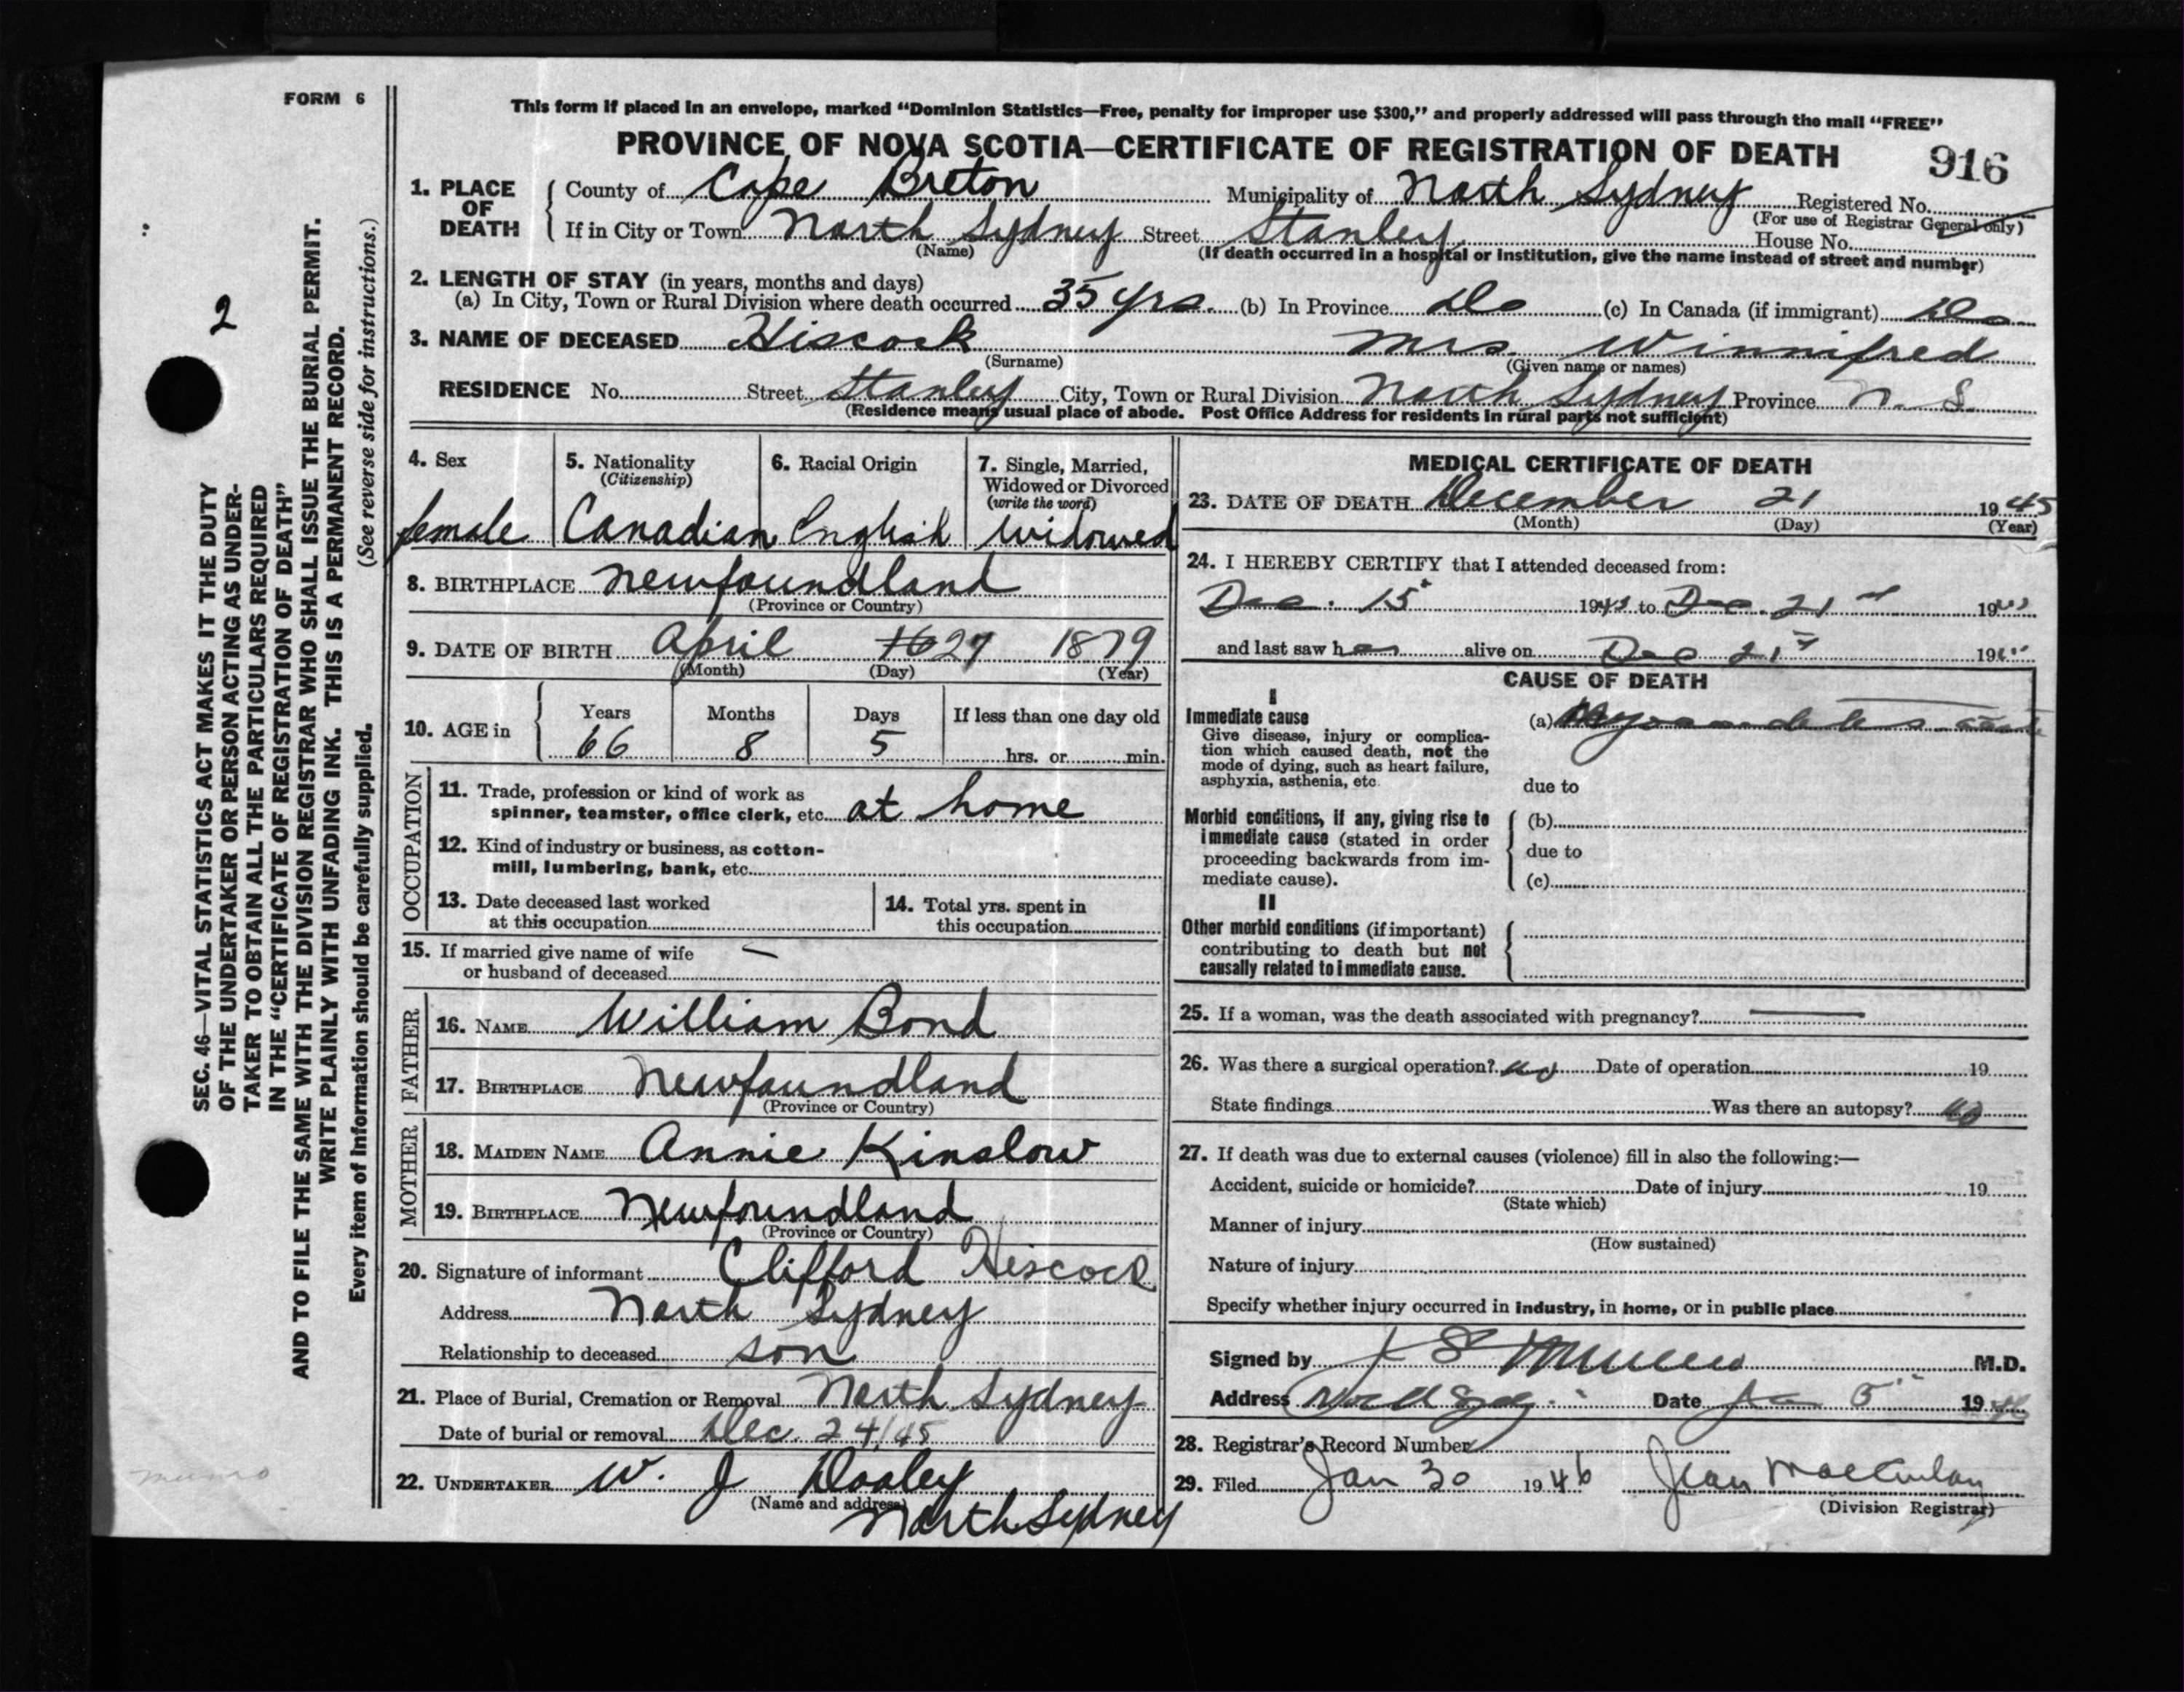 FORM 6
This form if placed in an envelope, marked “Dominion Statistics—Free, penalty for improper use $300,” and properly addressed will pass through the mail “FREE”
PROVINCE OF NOVA SCOTIA—CERTIFICATE OF REGISTRATION OF DEATH 916
1. PLACE OF DEATH
County of Cape Breton Municipality of North Sydney Registered No.
(For use of Registrar General only)
If in City or Town North Sydney Street Stanley House No.
(Name) (If death occurred in a hospital or institution, give the name instead of street and number)
2. LENGTH OF STAY (in years, months and days)
(a) In City, Town or Rural Division where death occurred 35 yrs. (b) In Province Do (c) In Canada (if immigrant) Do
3. NAME OF DECEASED Hiscock Mrs. Winnifred
(Surname) (Given name or names)
RESIDENCE No. Street Stanley City, Town or Rural Division North Sydney Province N. S.
(Residence means usual place of abode. Post Office Address for residents in rural parts not sufficient)
4. Sex
female
5. Nationality
(Citizenship)
Canadian
6. Racial Origin
English
7. Single, Married,
Widowed or Divorced
(write the word)
widowed
8. BIRTHPLACE Newfoundland
(Province or Country)
9. DATE OF BIRTH April 16 27 1879
(Month) (Day) (Year)
10. AGE in
Years Months Days If less than one day old
66 8 5 hrs. or min.
OCCUPATION
11. Trade, profession or kind of work as
spinner, teamster, office clerk, etc. at home
12. Kind of industry or business, as cotton-
mill, lumbering, bank, etc.
13. Date deceased last worked
at this occupation
14. Total yrs. spent in
this occupation
15. If married give name of wife —
or husband of deceased
FATHER
16. NAME William Bond
17. BIRTHPLACE Newfoundland
(Province or Country)
MOTHER
18. MAIDEN NAME Annie Kinslow
19. BIRTHPLACE Newfoundland
(Province or Country)
20. Signature of informant Clifford Hiscock
Address North Sydney
Relationship to deceased son
21. Place of Burial, Cremation or Removal North Sydney
Date of burial or removal Dec. 24/45
22. UNDERTAKER W. J Dooley
(Name and address)
North Sydney
MEDICAL CERTIFICATE OF DEATH
23. DATE OF DEATH December 21 1945
(Month) (Day) (Year)
24. I HEREBY CERTIFY that I attended deceased from:
Dec. 15 1945 to Dec. 21 19
and last saw h alive on Dec 21 19
CAUSE OF DEATH
I
Immediate cause
Give disease, injury or complica-
tion which caused death, not the
mode of dying, such as heart failure,
asphyxia, asthenia, etc.
(a)
due to
Morbid conditions, if any, giving rise to
immediate cause (stated in order
proceeding backwards from im-
mediate cause).
(b)
due to
(c)
II
Other morbid conditions (if important)
contributing to death but not
causally related to immediate cause.
25. If a woman, was the death associated with pregnancy? —
26. Was there a surgical operation? no Date of operation 19
State findings Was there an autopsy? no
27. If death was due to external causes (violence) fill in also the following:—
Accident, suicide or homicide? Date of injury 19
(State which)
Manner of injury
(How sustained)
Nature of injury
Specify whether injury occurred in industry, in home, or in public place
Signed by M.D.
Address Date Jan 5 1946
28. Registrar's Record Number
29. Filed Jan 30 1946 Jean
(Division Registrar)
2
SEC. 46—VITAL STATISTICS ACT MAKES IT THE DUTY
OF THE UNDERTAKER OR PERSON ACTING AS UNDER-
TAKER TO OBTAIN ALL THE PARTICULARS REQUIRED
IN THE “CERTIFICATE OF REGISTRATION OF DEATH”
AND TO FILE THE SAME WITH THE DIVISION REGISTRAR WHO SHALL ISSUE THE BURIAL PERMIT.
WRITE PLAINLY WITH UNFADING INK. THIS IS A PERMANENT RECORD.
Every item of information should be carefully supplied. (See reverse side for instructions.)
munro